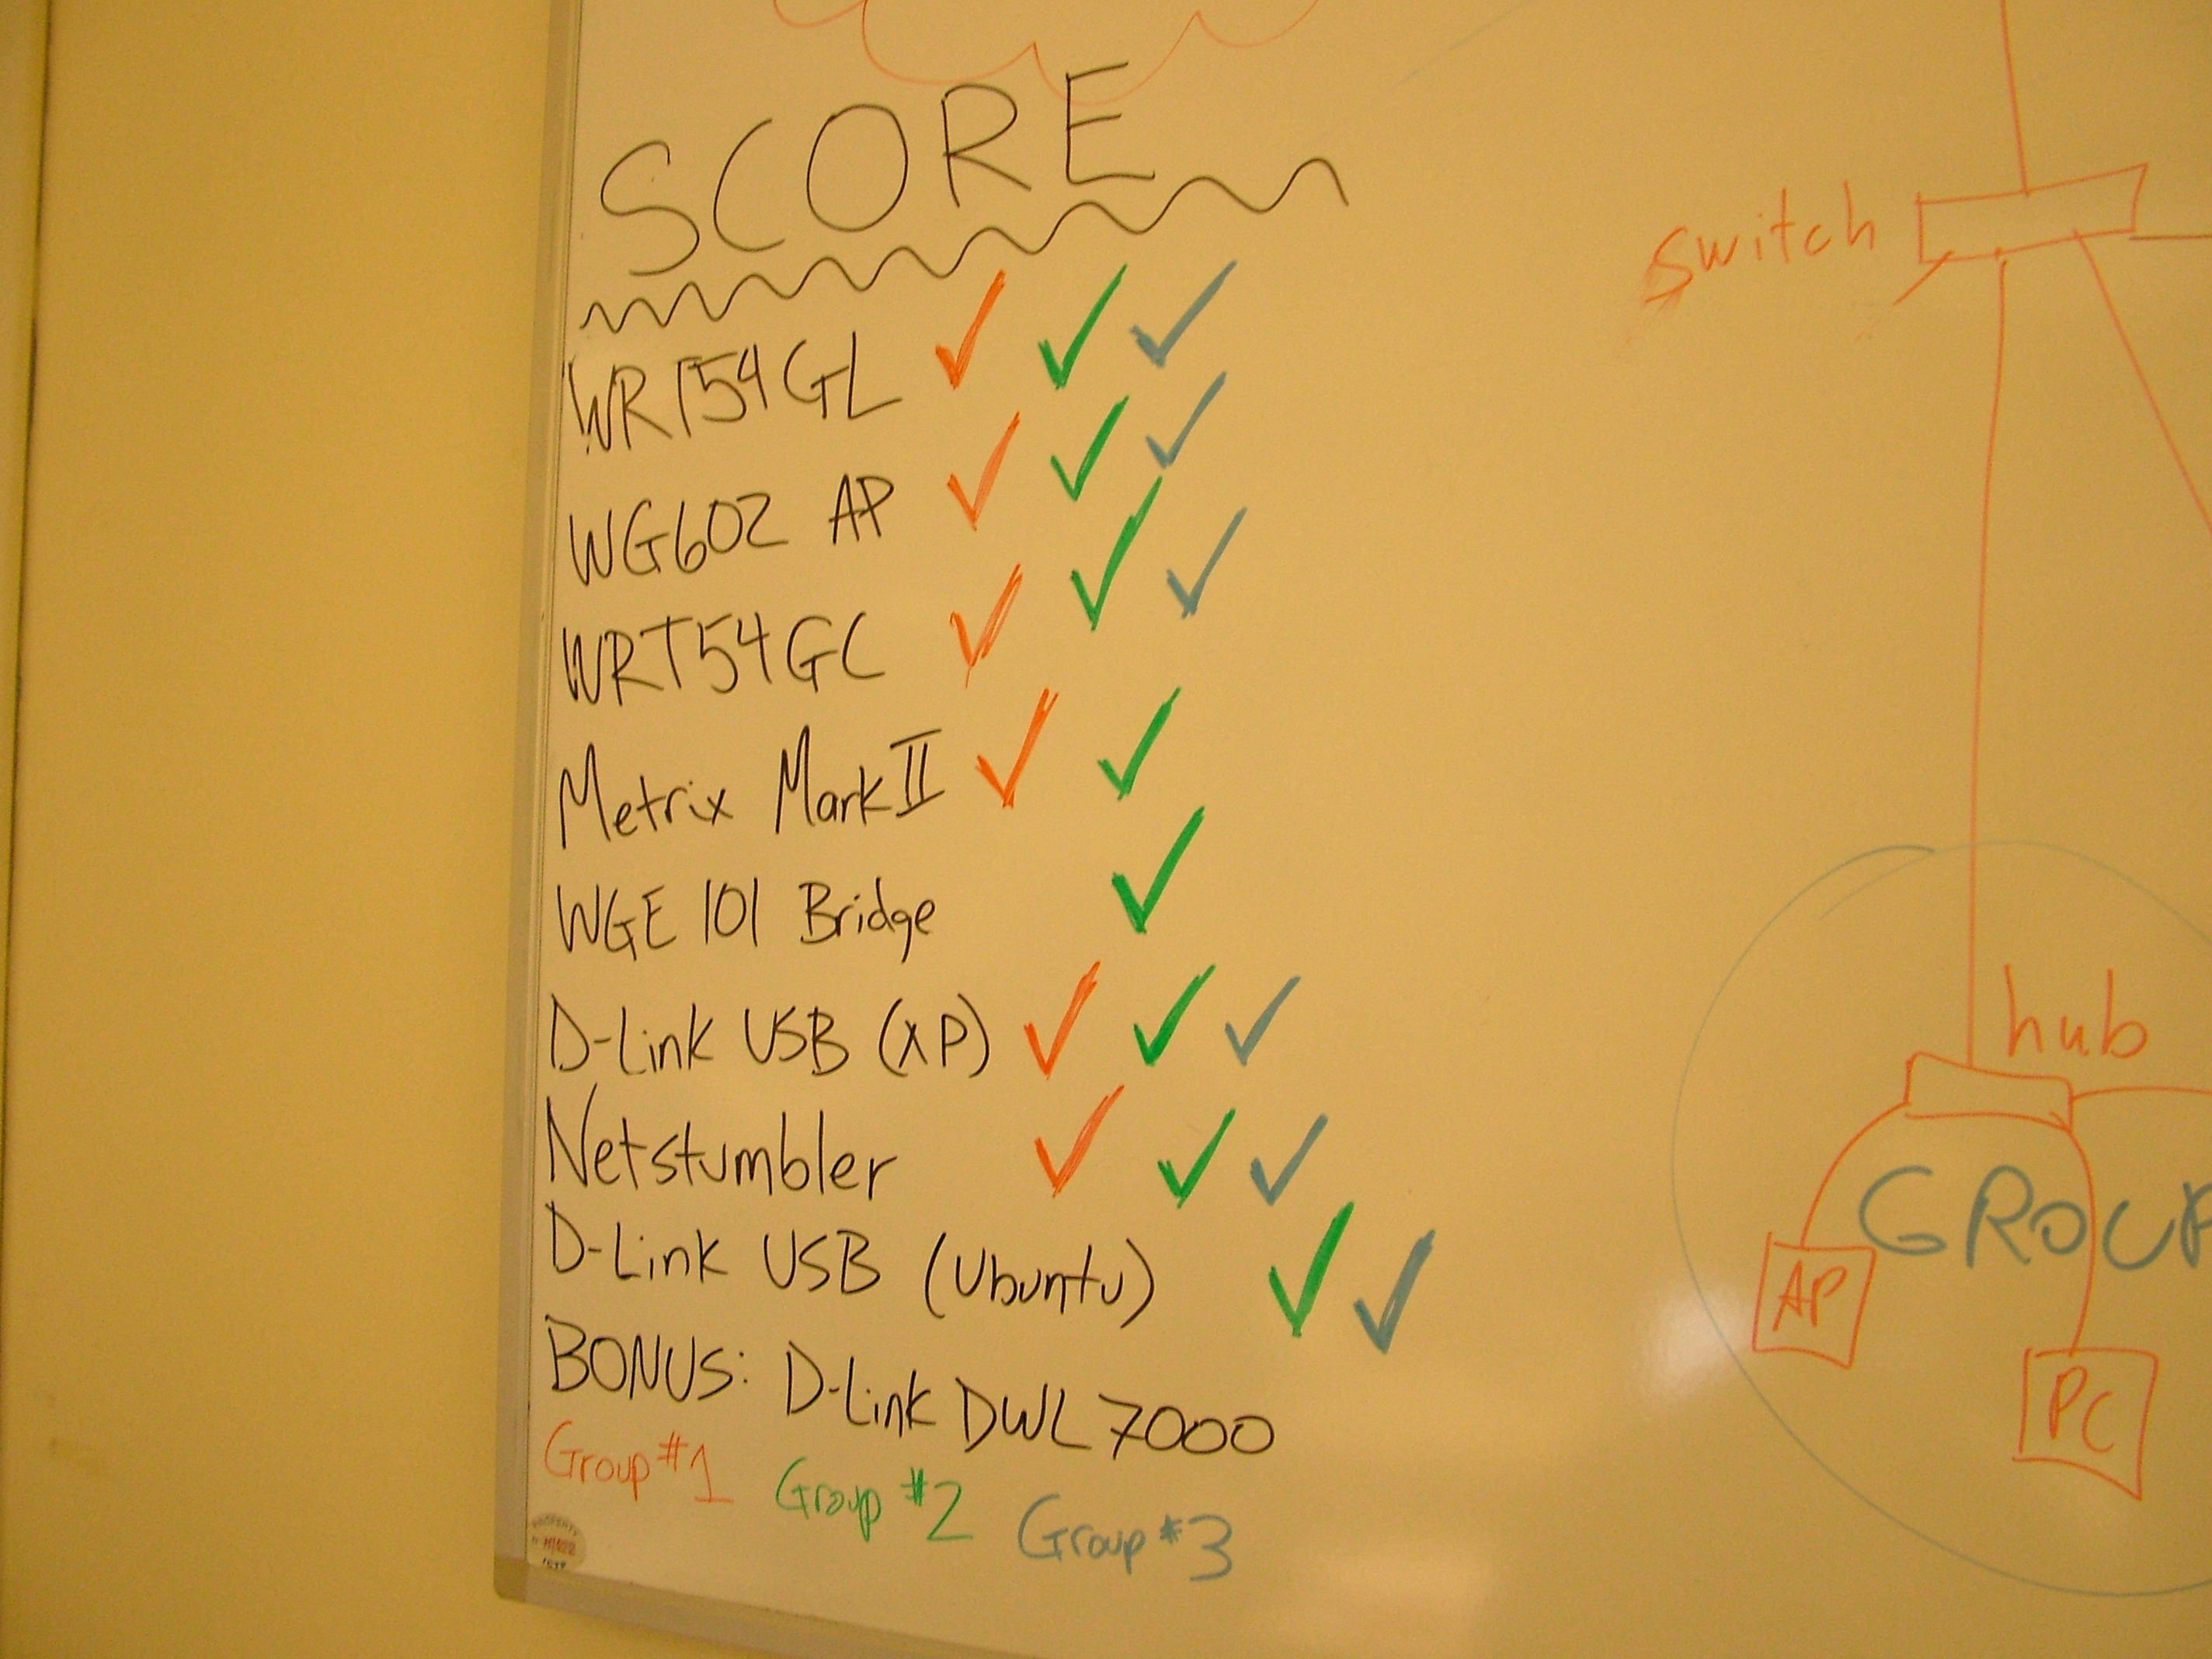 SCORE
WRT54GL
WG602 AP
WRT54GC
Metrix Mark II
WGE 101 Bridge
D-Link USB (XP)
Netstumbler
D-Link USB (Ubuntu)
BONUS: D-Link DWL 7000
Group #1 Group #2 Group #3
PROPERTY
switch
hub
GROUP
AP
PC